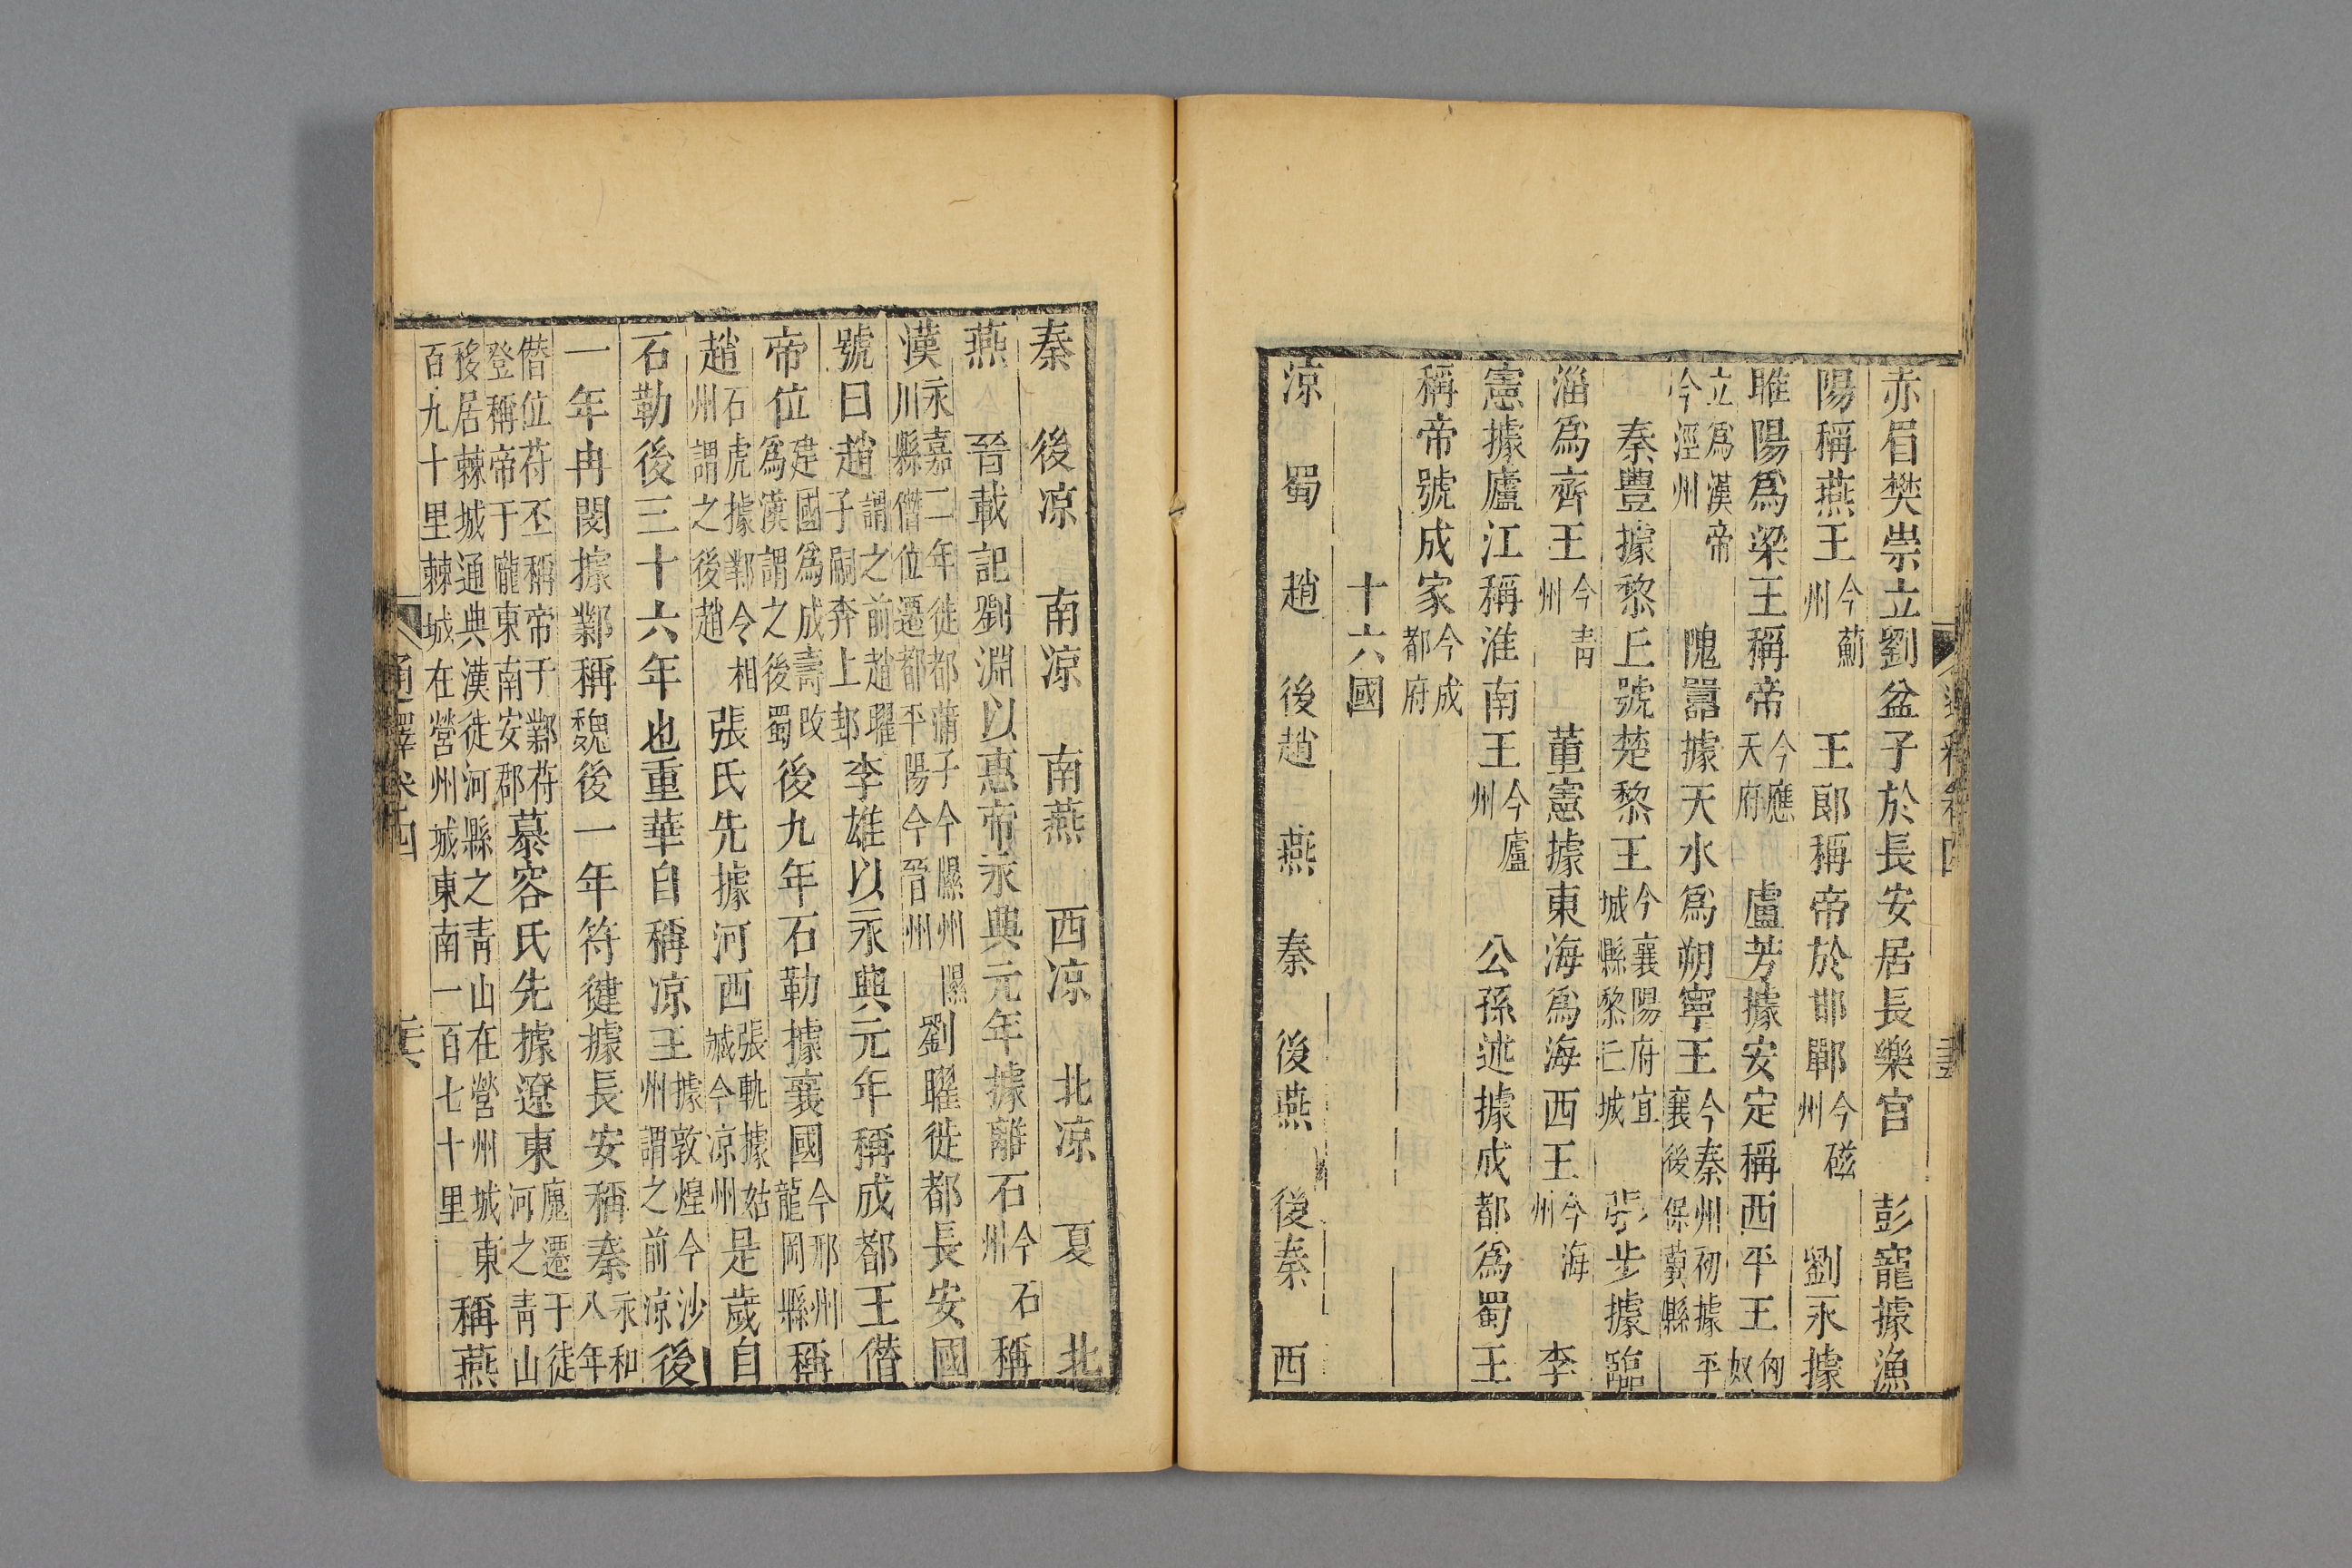 赤眉樊崇立劉盆子於長安居長樂宮　彭寵據漁
陽稱燕王今薊州　王郎稱帝於邯鄲今磁州　劉永據
睢陽爲梁王稱帝今應天府　盧芳據安定稱西平王匈奴
立爲漢帝今涇州　隗囂據天水爲朔寧王今秦州初據平襄後保冀縣
秦豐據黎丘號楚黎王今襄陽府宜城縣黎丘城　張步據臨
淄爲齊王今青州　董憲據東海爲海西王今海州　李
憲據廬江稱淮南王今廬州　公孫述據成都爲蜀王
稱帝號成家今成都府
十六國
涼　蜀　趙　後趙　燕　秦　後燕　後秦　西
秦　後凉　南凉　南燕　西凉　北凉　夏　北
燕　晉載記劉淵以惠帝永興元年據離石今石州稱
漢永嘉二年徙都蒲子今隰州隰川縣僭位遷都平陽今晉州　劉曜徙都長安國
號曰趙謂之前趙曜子嗣奔上邽李雄以永興元年稱成都王僭
帝位建國爲成壽改爲漢謂之後蜀後九年石勒據襄國今邢州龍岡縣稱
趙石虎據鄴今相州謂之後趙張氏先據河西張軌據姑臧今凉州是歲自
石勒後三十六年也重華自稱凉王據敦煌今沙州謂之前凉後
一年冉閔據鄴稱魏後一年符健據長安稱秦永和八年
僭位苻丕稱帝于鄴苻登稱帝于隴東南安郡慕容氏先據遼東廆遷于徒河之青山
移居棘城通典漢徒河縣之青山在營州城東百九十里棘城在營州城東南一百七十里稱燕
通釋卷四